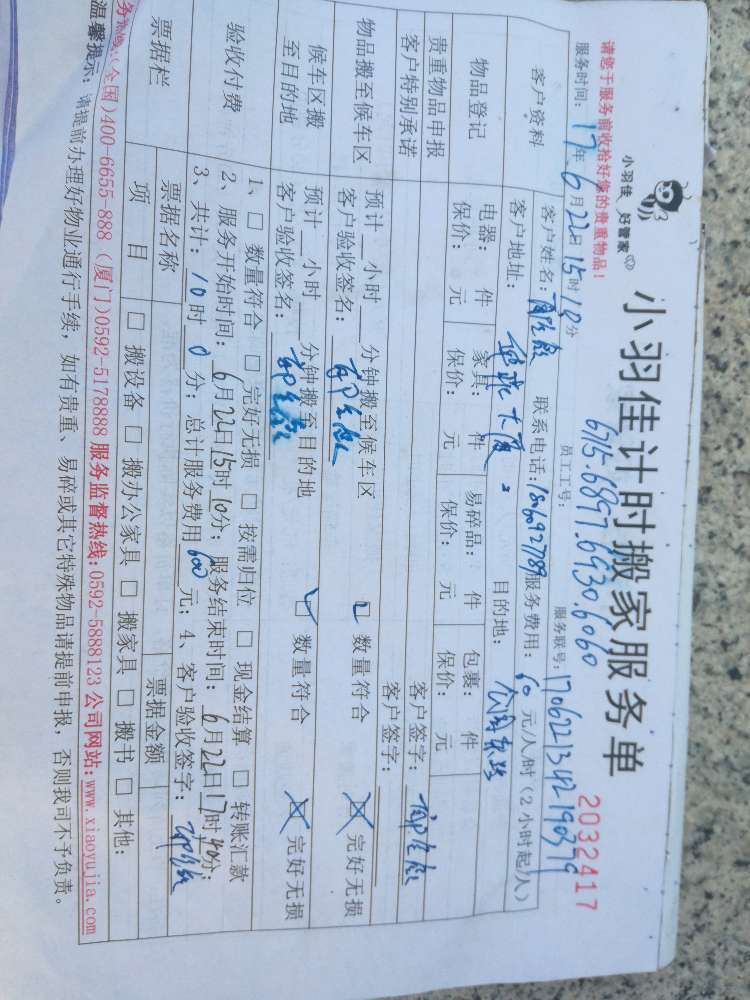 小羽佳 好管家
小羽佳计时搬家服务单
2032417
请您于服务前收拾好您的贵重物品!
6715.6897.6930.6060
服务时间: 17年6月22日15时10分 员工工号: 服务联号: 1706221342190379
客户资料 客户姓名: 联系电话: 1860692789 服务费用: 60元/人/时(2小时起/人)
客户地址: 大厦 目的地:
物品登记 电器: 件 家具: 件 易碎品: 件 包裹: 件
保价: 元 保价: 元 保价: 元 保价: 元
贵重物品申报 客户签字:
客户特别承诺 客户签字:
物品搬至候车区 预计 小时 分钟搬至候车区 □ 数量符合 □ 完好无损
客户验收签名:
候车区搬至目的地 预计 小时 分钟搬至目的地 □ 数量符合 □ 完好无损
客户验收签名:
验收付费 1、□ 数量符合 □ 完好无损 □ 按需归位 □ 现金结算 □ 转账汇款
2、服务开始时间: 6月22日15时10分; 服务结束时间: 6月22日17时40分;
3、共计: 10时0分; 总计服务费用600元; 4、客户验收签字:
票据栏 票据名称 票据金额
项 目 □ 搬设备 □ 搬办公家具 □ 搬家具 □ 搬书 □ 其他:
务热线:(全国)400-6655-888 (厦门)0592-5178888 服务监督热线:0592-5888123 公司网站:www.xiaoyujia.com
温馨提示: 请提前办理好物业通行手续，如有贵重、易碎或其它特殊物品请提前申报，否则我司不予负责。